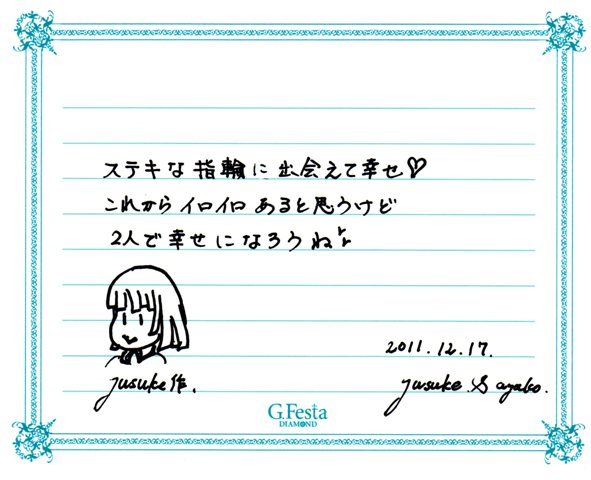 ステキな指輪に出会えて幸せ♡
これからイロイロあると思うけど
2人で幸せになろうね♪
yusuke作.
2011.12.17.
yusuke & ayako.
G.Festa
DIAMOND